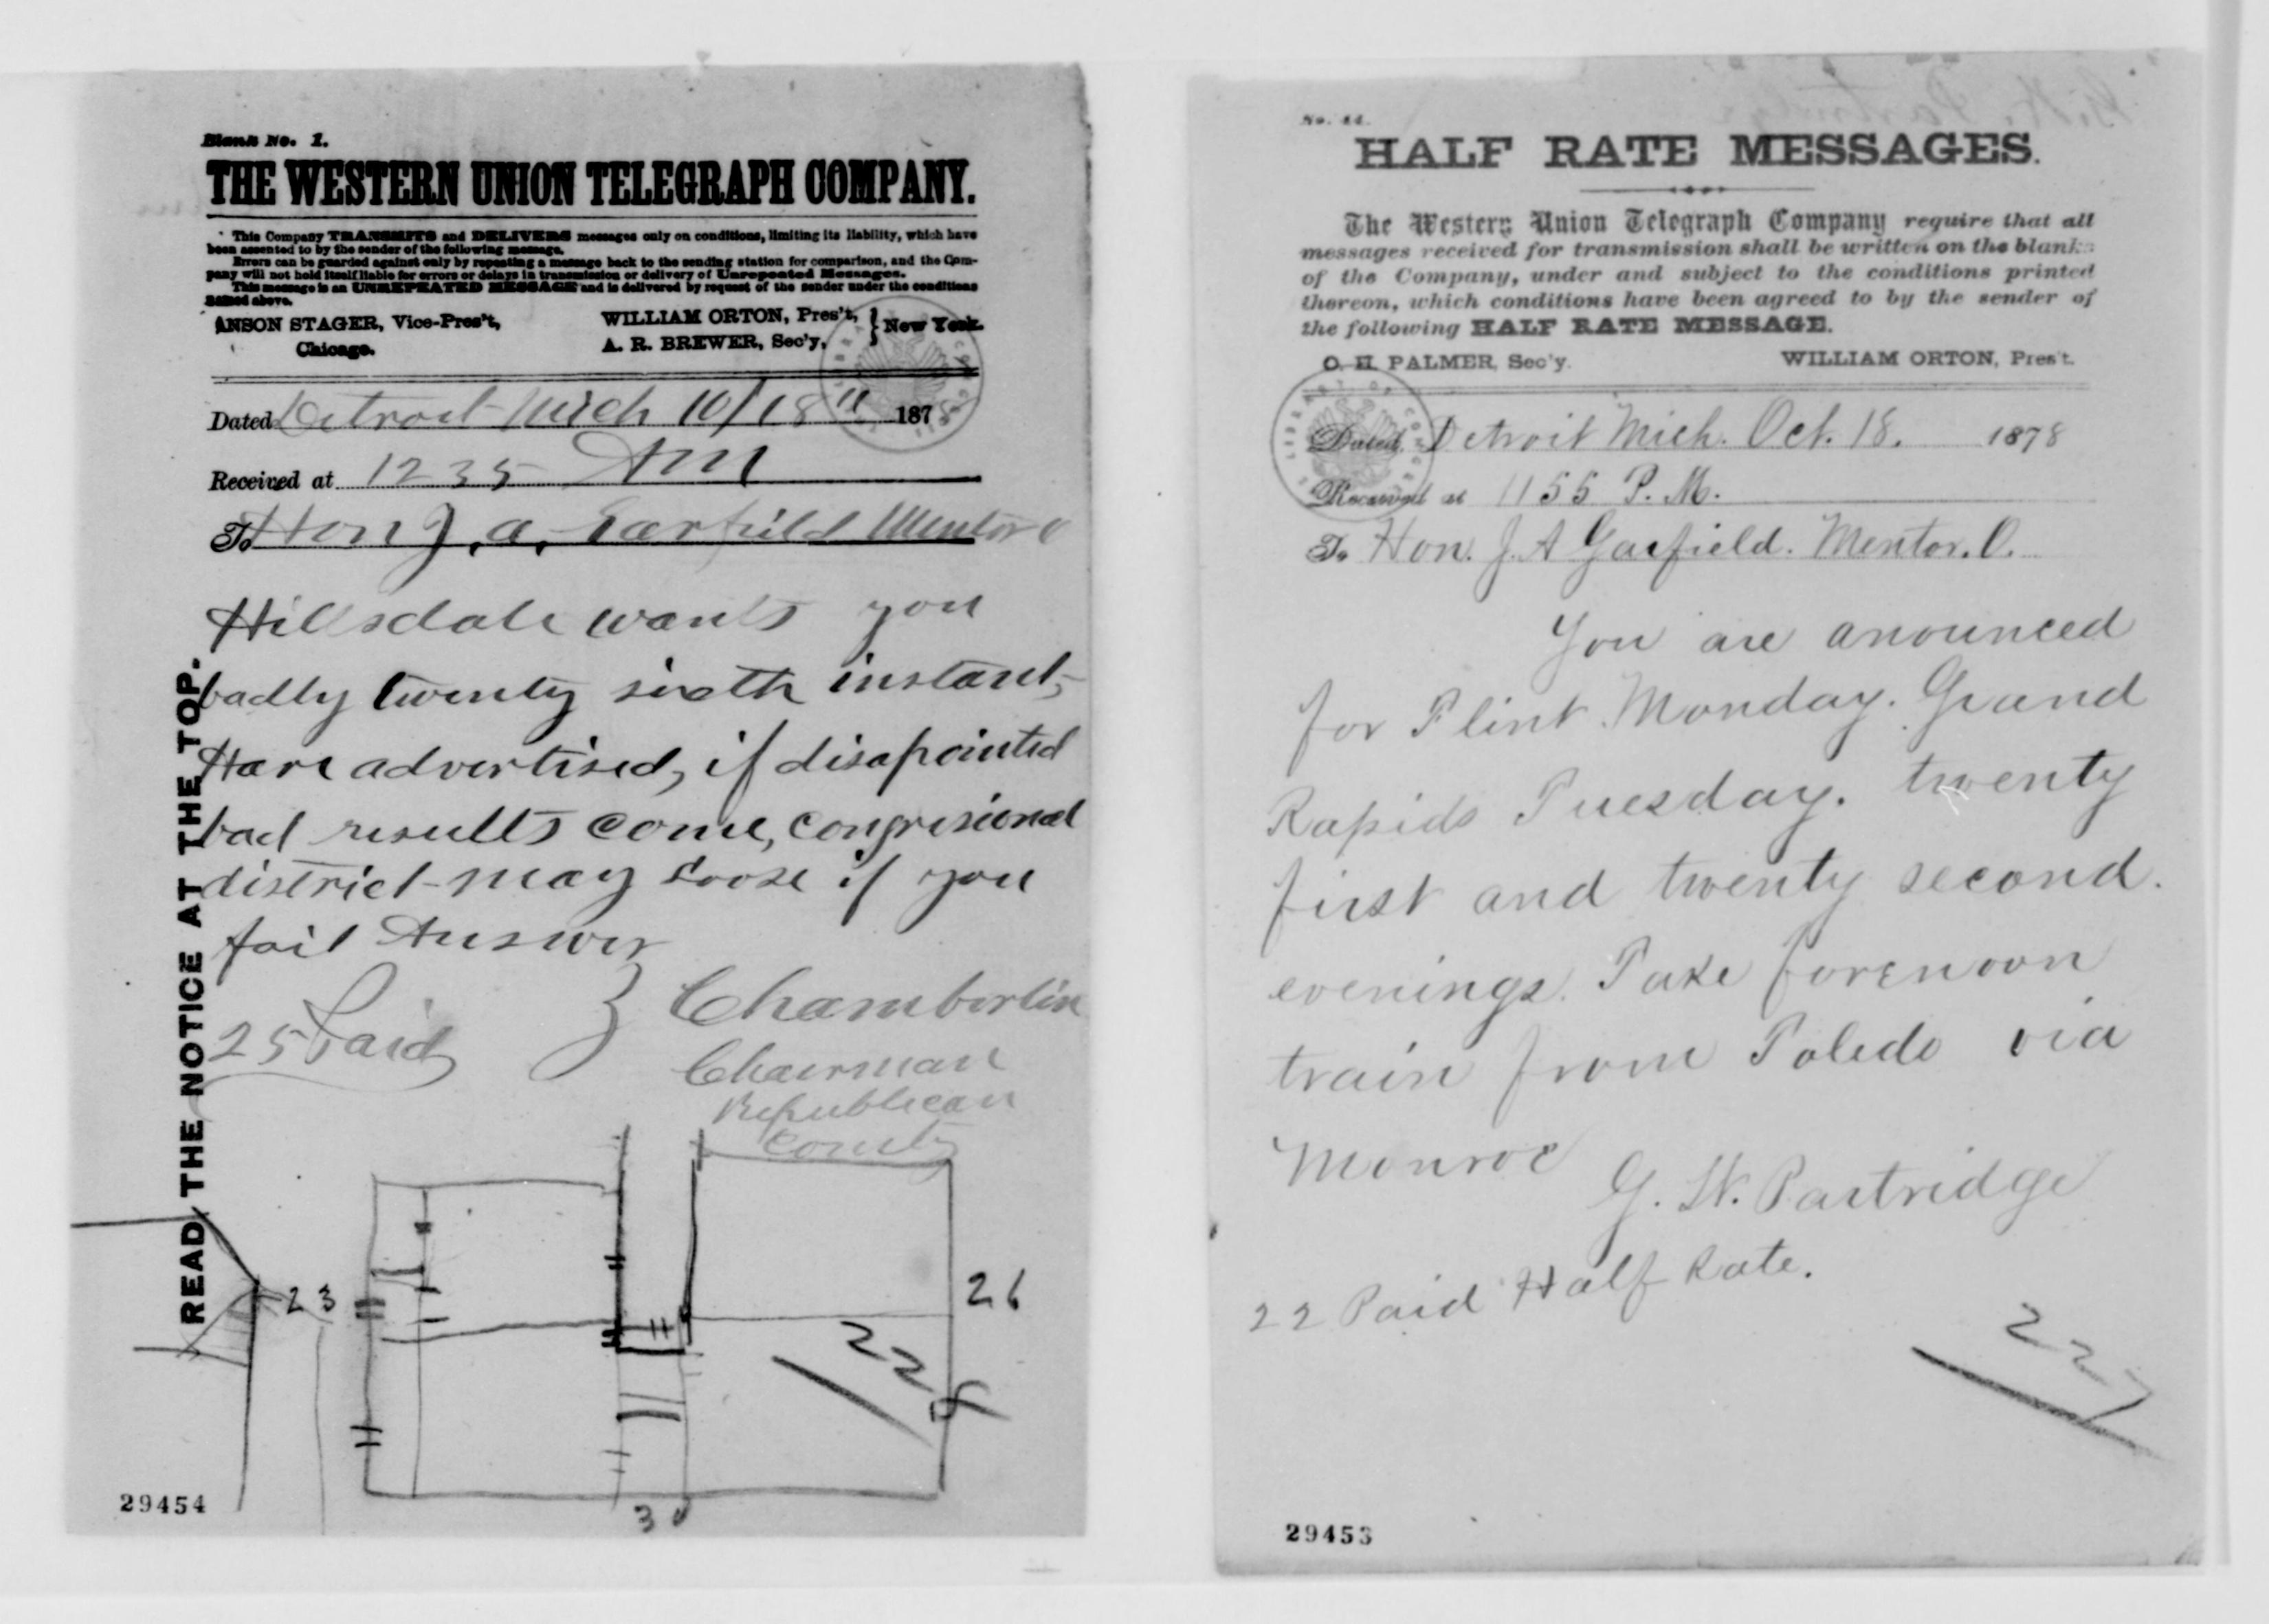 Blank No. 1.
THE WESTERN UNION TELEGRAPH COMPANY.
This Company TRANSMITS and DELIVERS messages only on conditions, limiting its liability, which have
been assented to by the sender of the following message.
Errors can be guarded against only by repeating a message back to the sending station for comparison, and the Com-
pany will not hold itself liable for errors or delays in transmission or delivery of Unrepeated Messages.
This message is an UNREPEATED MESSAGE and is delivered by request of the sender under the conditions
named above.
ANSON STAGER, Vice-Pres't,
Chicago.
WILLIAM ORTON, Pres't,
A. R. BREWER, Sec'y,
New York.
Dated Detroit Mich 10/18 1878
Received at 1235 AM
To Hon J, a, Garfield Mentor O
Hillsdale wants you
badly twenty sixth instant,
Have advertised, if disapointed
bad results come, congresional
district may loose if you
fail Answer
25 Paid
Chamberlin
Chairman
Republican
County
READ THE NOTICE AT THE TOP.
23
26
22
30
29454
No. 44.
HALF RATE MESSAGES.
The Western Union Telegraph Company require that all
messages received for transmission shall be written on the blanks
of the Company, under and subject to the conditions printed
thereon, which conditions have been agreed to by the sender of
the following HALF RATE MESSAGE.
O. H. PALMER, Sec'y.
WILLIAM ORTON, Pres't.
Dated, Detroit Mich. Oct. 18. 1878
Received at 1155 P.M.
To Hon. J. A Garfield. Mentor. O.
You are anounced
for Flint Monday. Grand
Rapids Tuesday. twenty
first and twenty second.
evenings. Take forenoon
train from Toledo via
Monroe
G. W. Partridge
22 Paid Half Rate.
227
29453